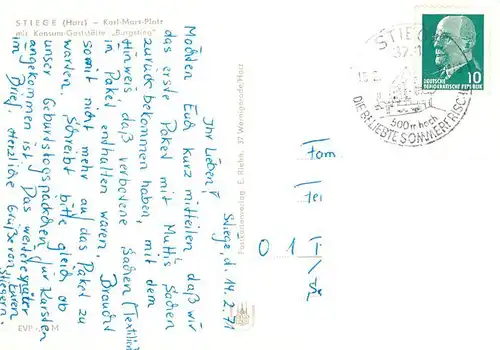 STIEGE (Harz) – Karl-Marx-Platz
mit Konsum-Gaststätte „Burgstieg"
Stiege, d. 14.2.71
Ihr Lieben!
Möchten Euch kurz mitteilen daß wir
das erste Paket mit Muttis Sachen
zurückbekommen haben, mit dem
Hinweis, daß verbotene Sachen (Textilien)
im Paket enthalten waren. Braucht
somit nicht mehr auf das Paket zu
warten. Schreibt bitte gleich ob
unser Geburtstagspäckchen für Karsten
angekommen ist. Das weitere später
im Brief. Herzliche Grüße von Euren
Stiegern.
EVP M
Postkartenverlag E. Riehn, 37 Wernigerode/Harz
STIEGE
37
500 m hoch
DIE BELIEBTE SOMMERFRISCHE
DEUTSCHE
DEMOKRATISCHE REPUBLIK
10
Fam.
O 1